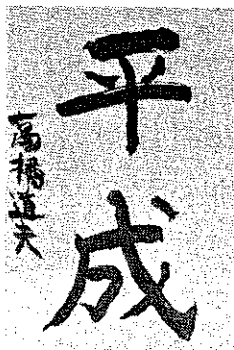 平成
高橋道夫